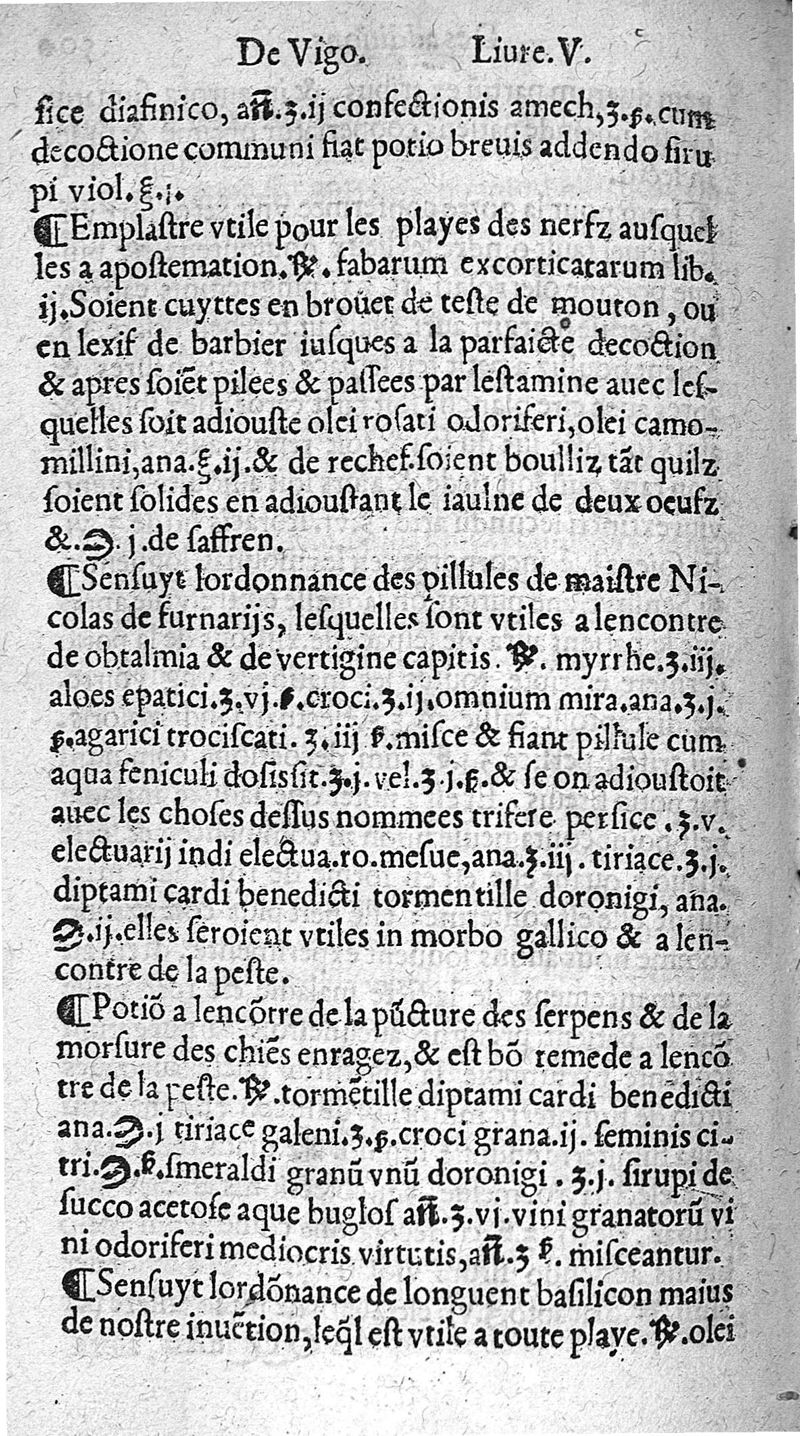 De Vigo. Liure. V.
ſice diafinico, an̄.ʒ.ij confectionis amech,ʒ.ß.cum
decoctione communi fiat potio breuis addendo ſiru
pi viol.℥.j.
¶Emplaſtre vtile pour les playes des nerfz auſquel
les a apoſtemation.℞. fabarum excorticatarum lib.
ij.Soient cuyttes en brouet de teſte de mouton, ou
en lexif de barbier iuſques a la parfaicte decoction
& apres ſoiēt pilees & paſſees par leſtamine auec leſ-
quelles ſoit adiouſte olei roſati odoriferi,olei camo-
millini,ana.℥.ij.& de rechef.ſoient boulliz tāt quilz
ſoient ſolides en adiouſtant le iaulne de deux oeufz
&.℈.j.de ſaffren.
¶Senſuyt lordonnance des pillules de maiſtre Ni-
colas de furnarijs, leſquelles ſont vtiles a lencontre
de obtalmia & de vertigine capitis.℞. myrrhe.ʒ.iij.
aloes epatici.ʒ.vj.ß.croci.ʒ.ij.omnium mira.ana.ʒ.j.
ß.agarici trociſcati.ʒ.iij ß.miſce & fiant pillule cum
aqua feniculi doſis ſit.ʒ.j.vel.ʒ.j.ß.& ſe on adiouſtoit
auec les choſes deſſus nommees trifere perſice.ʒ.v.
electuarij indi electua.ro.meſue,ana.ʒ.iij.tiriace.ʒ.j.
diptami cardi benedicti tormentille doronigi, ana.
℈.ij.elles ſeroient vtiles in morbo gallico & a len-
contre de la peſte.
¶Potiō a lencōtre de la pūcture des ſerpens & de la
morſure des chiēs enragez,& eſt bō remede a lencō
tre de la peſte.℞.tormētille diptami cardi benedicti
ana.℈.j tiriace galeni.ʒ.ß.croci grana.ij. ſeminis ci-
tri.℈.ß.ſmeraldi granū vnū doronigi.ʒ.j. ſirupi de
ſucco acetoſe aque bugloſ an̄.ʒ.vj.vini granatorū vi
ni odoriferi mediocris virtutis,an̄.ʒ ß. miſceantur.
¶Senſuyt lordōnance de longuent baſilicon maius
de noſtre inuētion,leq̄l eſt vtile a toute playe.℞.olei